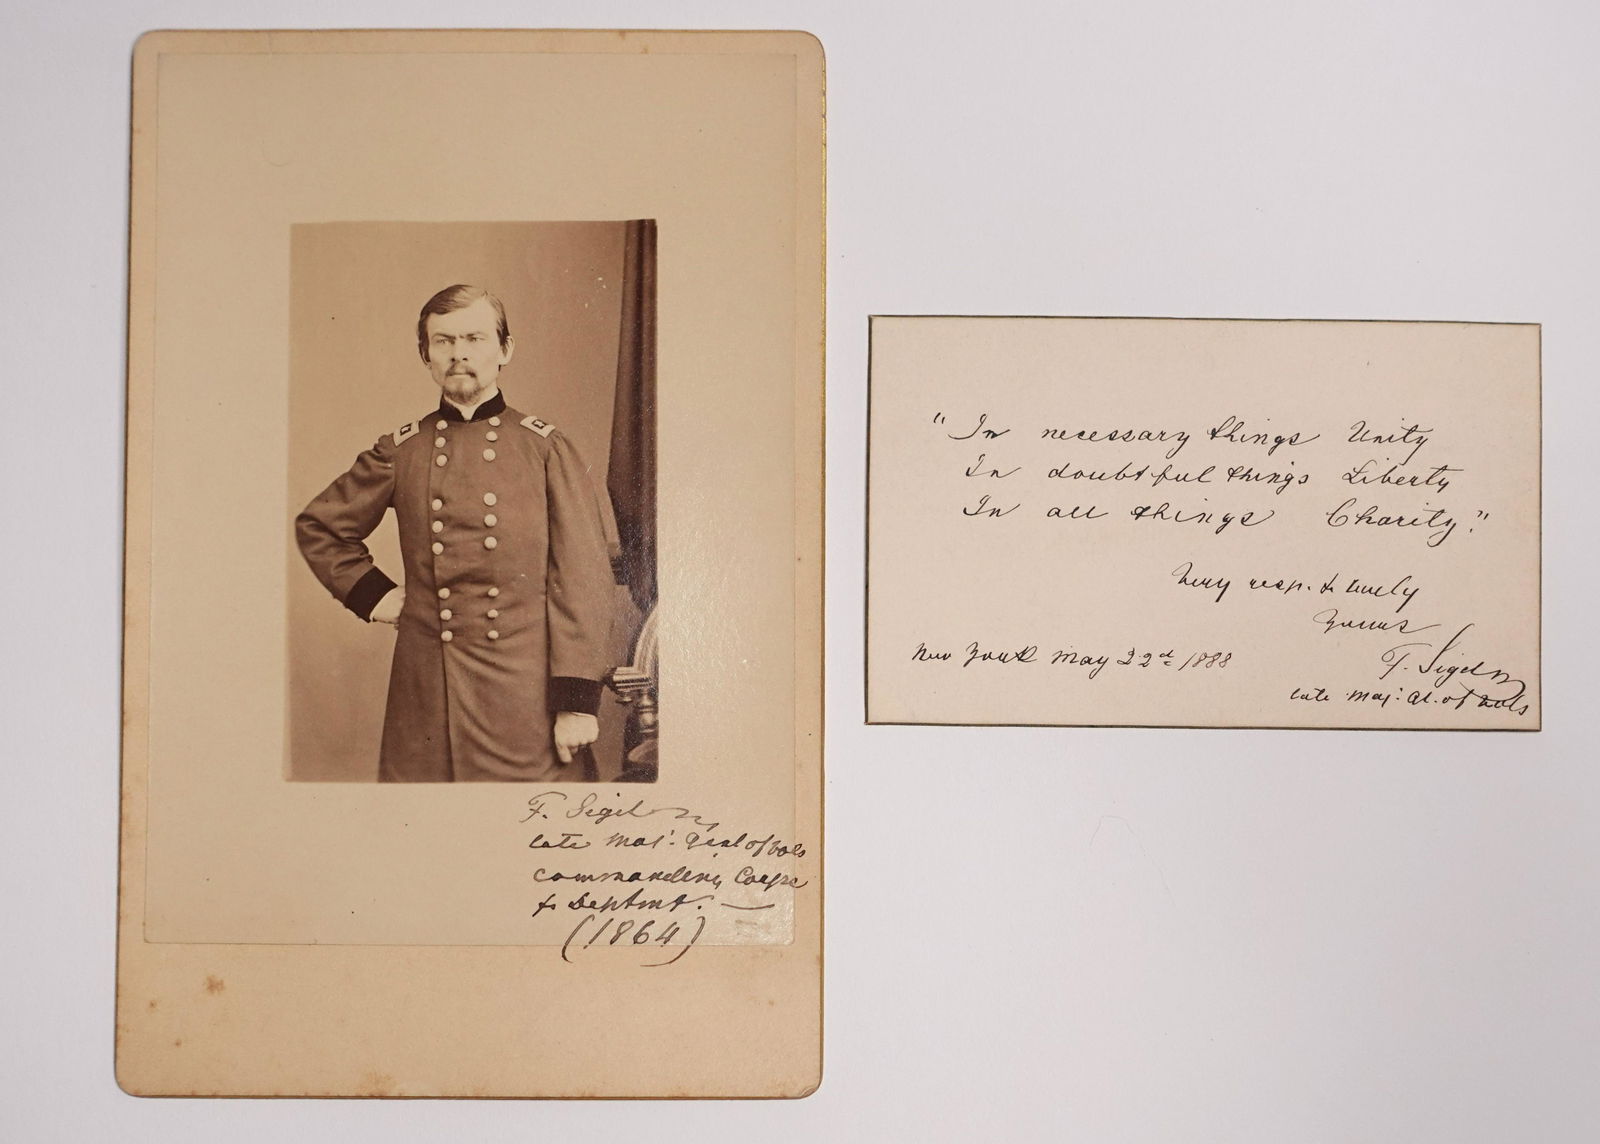 F. Sigel
late Maj: Genl of Vols
commanding Corps
& Deptmt. —
(1864)
"In necessary things Unity
In doubtful things Liberty
In all things Charity."
Very resp. & truly
Yours
F. Sigel
New York May 22d 1888
late Maj: Gl. of Vols